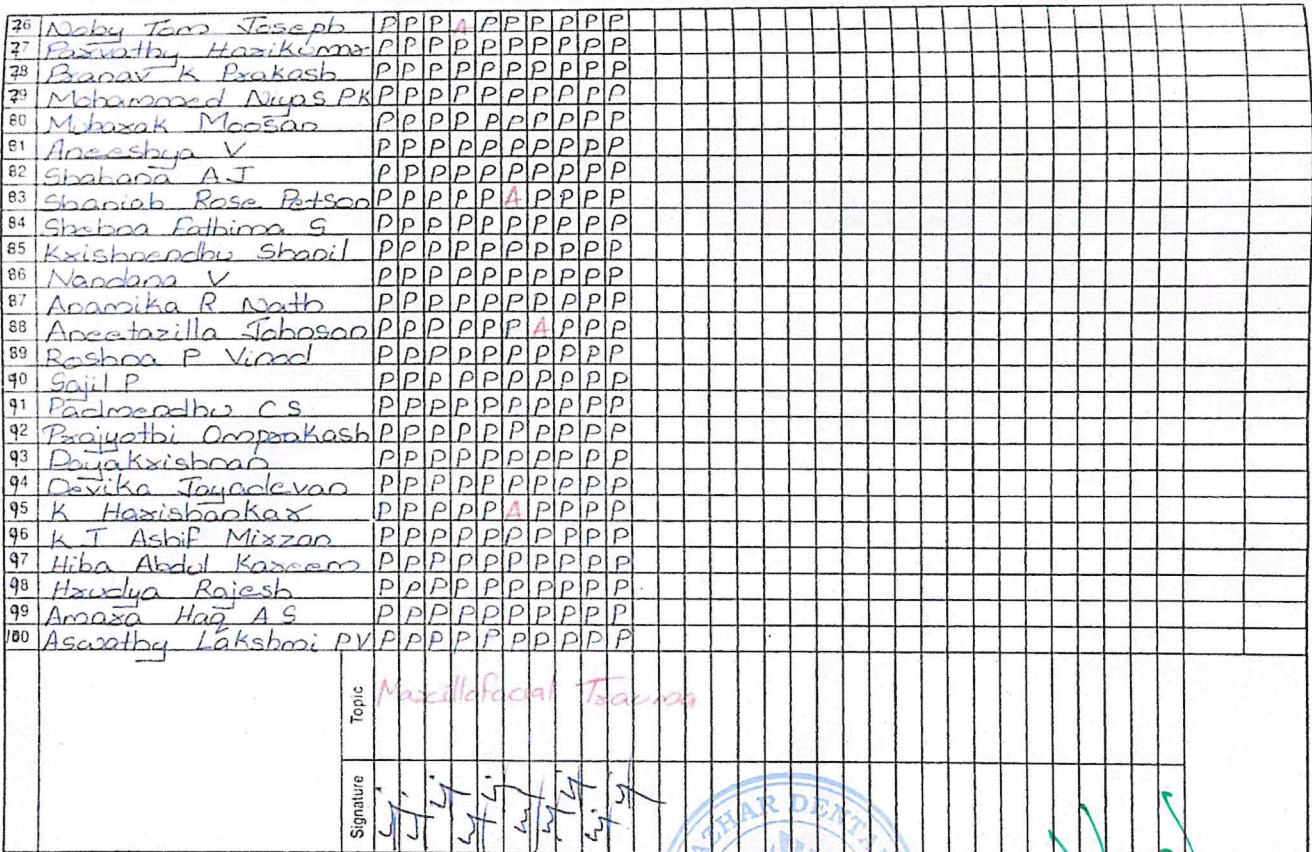 76 Noby Tom Joseph P P P A P P P P P P
77 Parvathy Harikumar P P P P P P P P P P
78 Pranav K Prakash P P P P P P P P P P
79 Mohammed Niyas PK P P P P P P P P P P
80 Mubarak Moosan P P P P P P P P P P
81 Aneeshya V P P P P P P P P P P
82 Shahana A J P P P P P P P P P P
83 Shaniah Rose Petson P P P P P A P P P P
84 Shebna Fathima S P P P P P P P P P P
85 Krishnendhu Shanil P P P P P P P P P P
86 Nandana V P P P P P P P P P P
87 Anamika R Nath P P P P P P P P P P
88 Aneetazilla Johnson P P P P P P A P P P
89 Roshna P Vinod P P P P P P P P P P
90 Sajil P P P P P P P P P P P
91 Padmendhu C S P P P P P P P P P P
92 Prajyothi Omprakash P P P P P P P P P P
93 Dayakrishnan P P P P P P P P P P
94 Devika Jayadevan P P P P P P P P P P
95 K Harishankar P P P P P A P P P P
96 K T Ashif Mirzan P P P P P P P P P P
97 Hiba Abdul Kareem P P P P P P P P P P
98 Hrudya Rajesh P P P P P P P P P P
99 Amara Haq A S P P P P P P P P P P
100 Aswathy Lakshmi PV P P P P P P P P P P
Topic Maxillofacial Trauma
Signature
AZHAR DENTAL